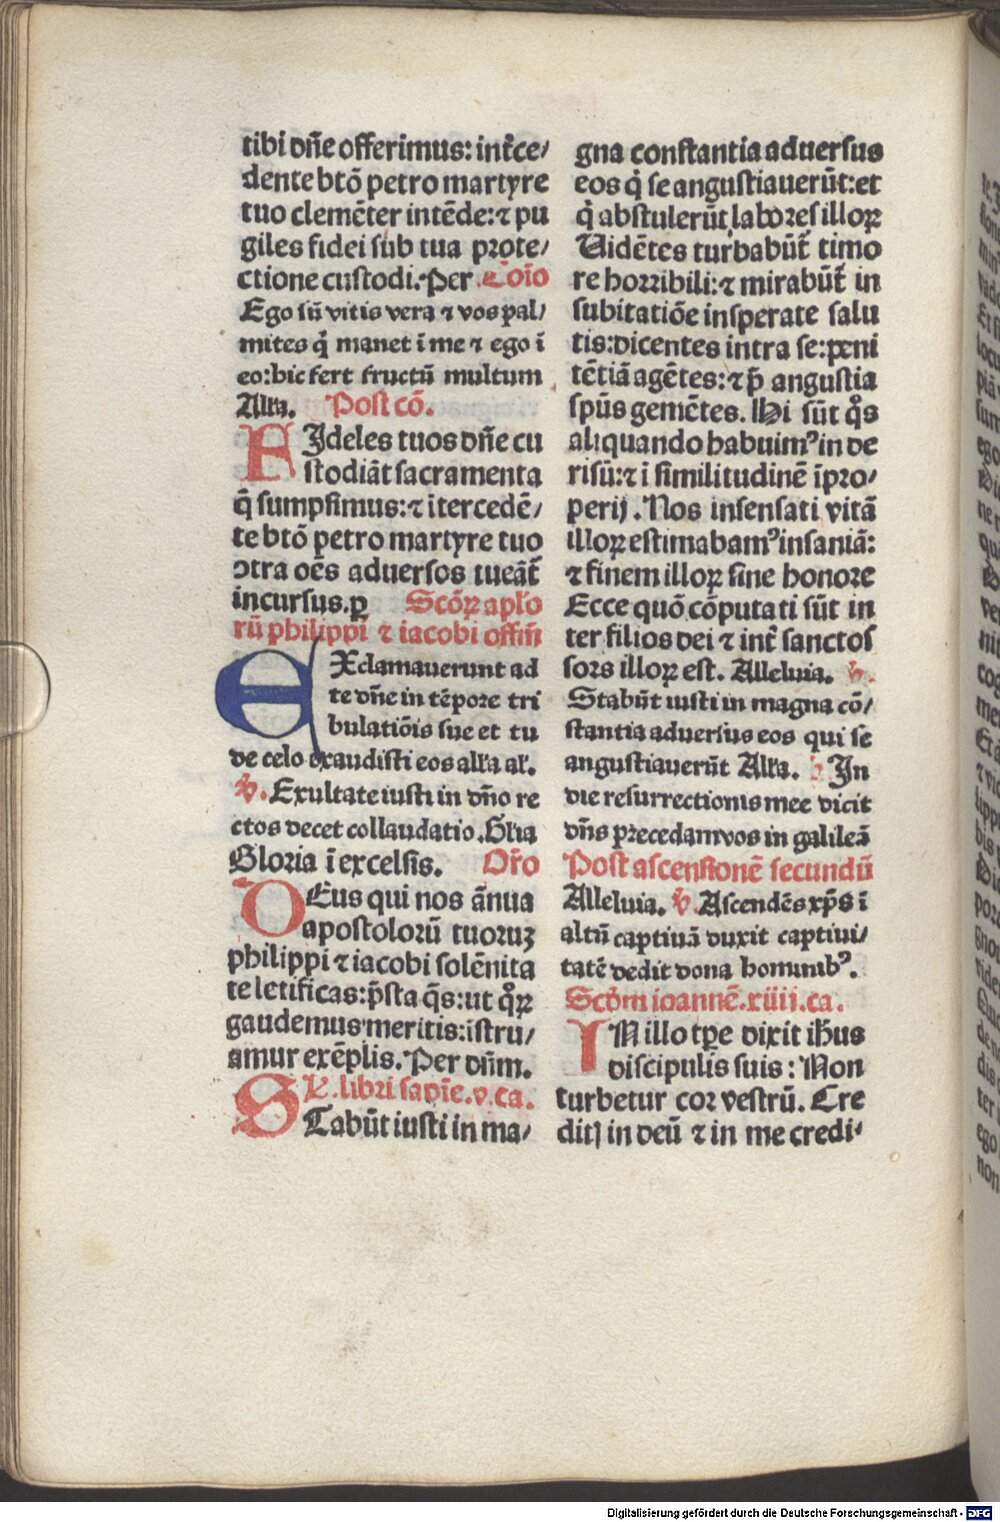 tibi dn̄e offerimus: int̄ce/
dente btō petro martyre
tuo clemēter intēde: ⁊ pu
giles fidei sub tua prote/
ctione custodi. Per Coīo
Ego sū vitis vera ⁊ vos pal/
mites q̄ manet ī me ⁊ ego ī
eo: hic fert fructū multum
Alla. Post cō.
FIdeles tuos dn̄e cu
stodiāt sacramenta
q̄ sumpsimus: ⁊ itercedē/
te btō petro martyre tuo
ↄtra oēs aduersos tueāt̄
incursus. p Scōꝝ apl'o
rū philippi ⁊ iacobi offm̄
EXclamauerunt ad
te dn̄e in tēpore tri
bulatiōis sue et tu
de celo exaudisti eos all'a al'.
℣. Exultate iusti in dn̄o re
ctos decet collaudatio. Gl'ia
Gloria ī excelsis. Or̄o
DEus qui nos ānua
apostolorū tuoruꝫ
philippi ⁊ iacobi solēnita
te letificas: p̄sta q̄s: ut qͦꝝ
gaudemus meritis: īstru/
amur exēplis. Per dn̄m.
L. libri sapīe. v. ca.
STabūt iusti in ma/
gna constantia aduersus
eos q̇ se angustiauerūt: et
q̇ abstulerūt labores illoꝝ
Uidētes turbabūt̄ timo
re horribili: ⁊ mirabūt̄ in
subitatiōe insperate salu
tis: dicentes intra se: peni
tētiā agētes: ⁊ p̄ angustia
sp̄us gemētes. Hi sūt q̊s
aliquando habuimꝰ in de
risū: ⁊ ī similitudinē īpro/
perij. Nos insensati vitā
illoꝝ estimabamꝰ insaniā:
⁊ finem illoꝝ sine honore
Ecce quō cōputati sūt in
ter filios dei ⁊ int̄ sanctos
sors illoꝝ est. Alleluia. ℣.
Stabūt iusti in magna cō/
stantia aduersus eos qui se
angustiauerūt Alla. ℣. In
die resurrectionis mee dicit
dn̄s precedam vos in galileā
Post ascensionē secundū
Alleluia. ℣. Ascendēs xp̄s ī
altū captiuā duxit captiui/
tatē dedit dona hominibꝰ.
Scdm ioannē. xiiij. ca.
IN illo tpe dixit ih̄us
discipulis suis: Non
turbetur cor vestrū. Cre
ditȷ in deū ⁊ in me credi/
Digitalisierung gefördert durch die Deutsche Forschungsgemeinschaft - DFG